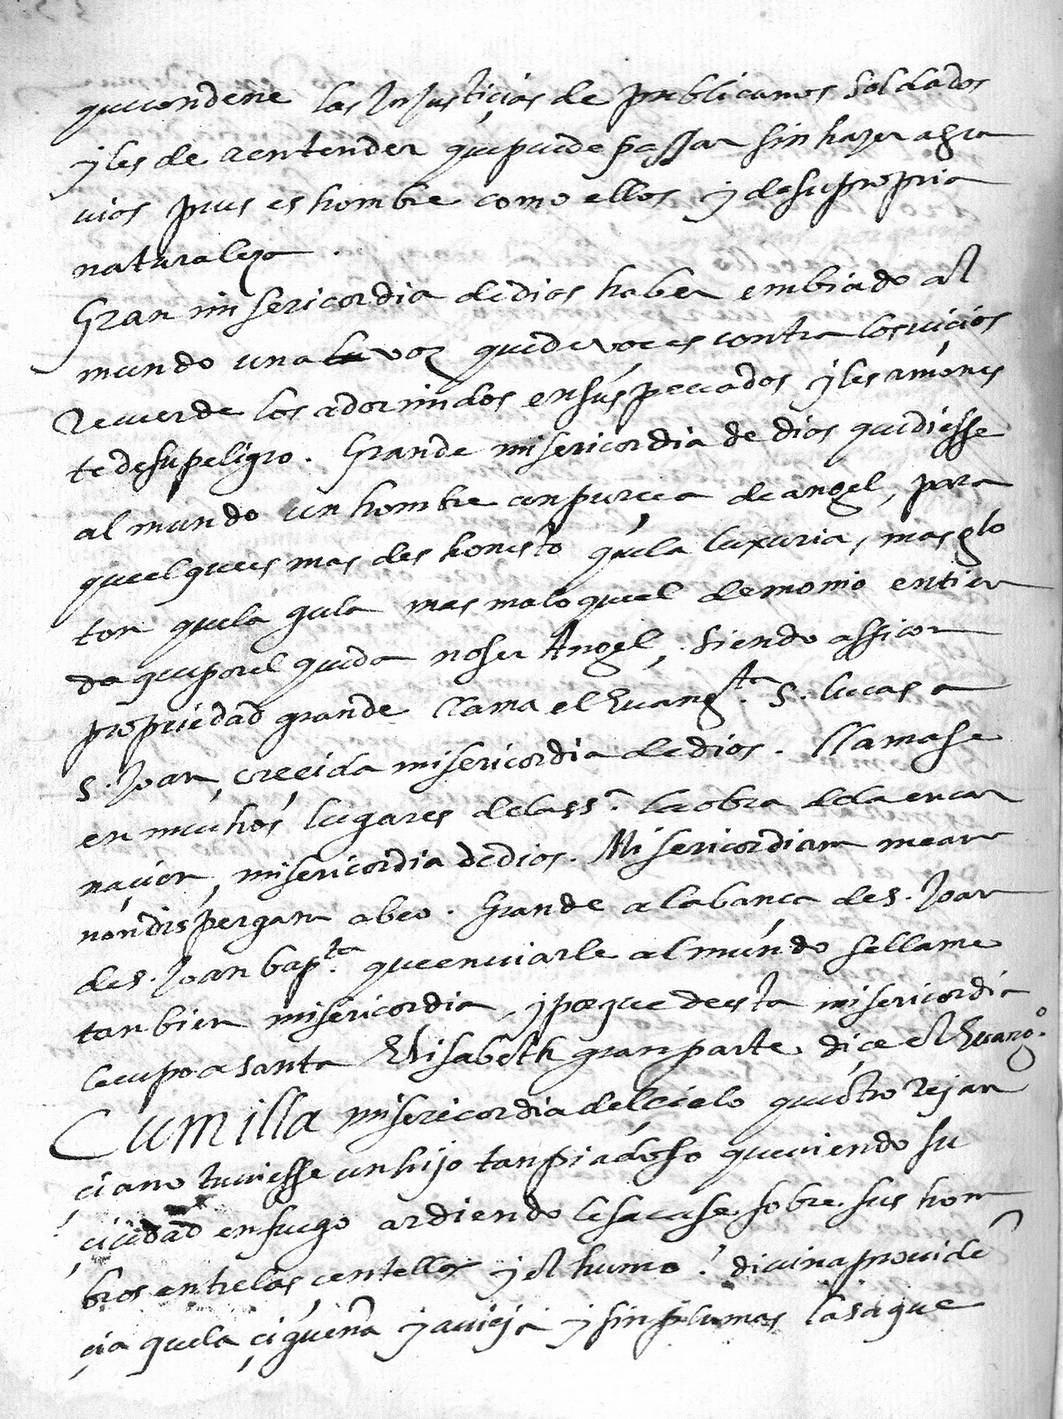 que condene las Injusticias de publicanos soldados
y les de a entender que puede passar sin hazer agra
vios pues es hombre como ellos y de su propria
naturaleza.
Gran misericordia de dios haber embiado al
mundo una voz que de voces contra los vicios
recuerde los adormidos en sus peccados y les amones
te de su peligro. Grande misericordia de dios que diesse
al mundo un hombre con pureça de angel, para
que el que es mas deshonesto que la luxuria, mas glo
ton que la gula mas malo que el demonio entien
da que por el queda no ser Angel, siendo assi con
propiedad grande llama el Euangta. S. lucas a
S. Joan, creçida misericordia de dios. llamase
en muchos lugares de la ss.a la obra de la encar
naçion, misericordia de dios. Misericordiam meam
non dispergam ab eo. Grande alabança de S. Joan
de S. Joan bapta. que enviarle al mundo se llame
tanbien misericordia, y porque de esta misericordia
le cupo a santa Elisabeth gran parte, dice el Euango.
Cum illa misericordia del cielo que otro rejan
çiano tuviesse un hijo tan piadoso que viendo su
çiudad en fuego ardiendo le sacase sobre sus hom
bros entre las çentellas y el humo? divina provide
çia que la çigueña ya vieja y sin plumas la saque